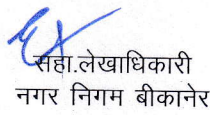 सहा.लेखाधिकारी
नगर निगम बीकानेर